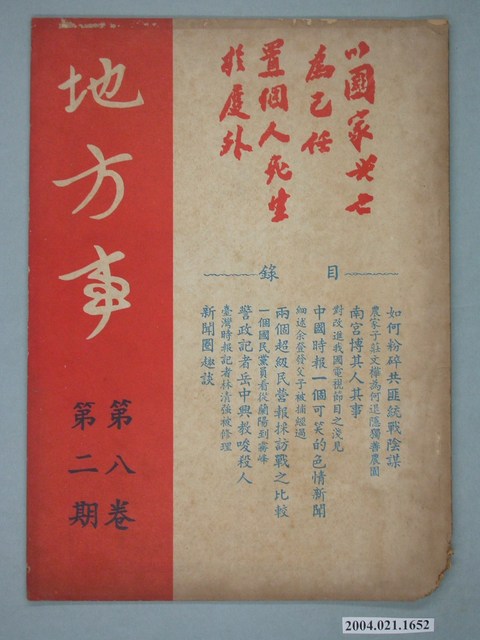 地方事
第八卷
第二期
以國家興亡
為己任
置個人死生
於度外
目錄
如何粉碎共匪統戰陰謀
農家子莊文樺為何退隱獨善農園
南宮博其人其事
對改進我國電視節目之淺見
中國時報一個可笑的色情新聞
細述余登發父子被捕經過
兩個超級民營報採訪戰之比較
一個國民黨員看從蘭陽到霧峰
警政記者岳中興教唆殺人
臺灣時報記者林清強被修理
新聞圈趣談
2004.021.1652